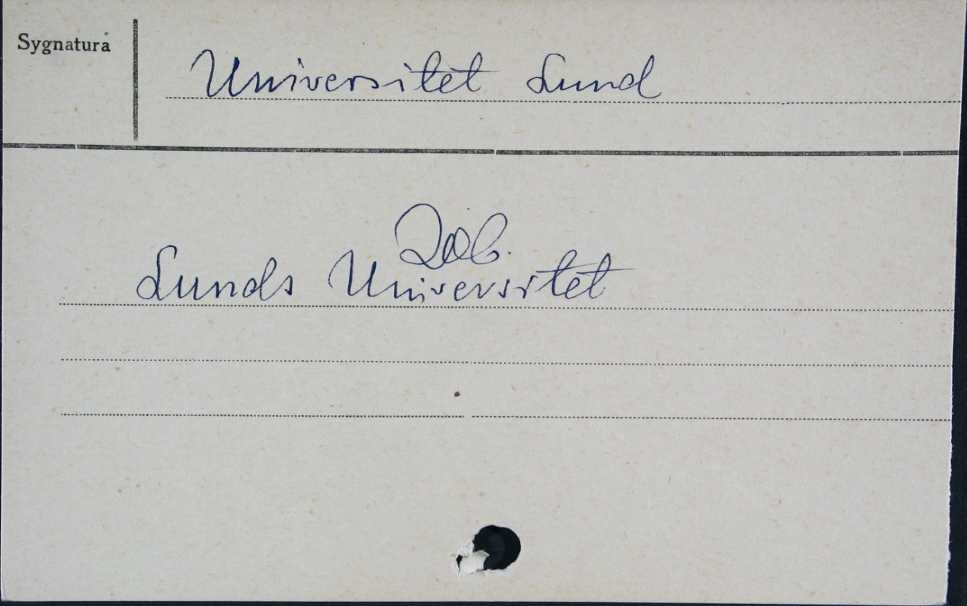 Sygnatura
Universitet Lund
Zob.
Lunds Universitet